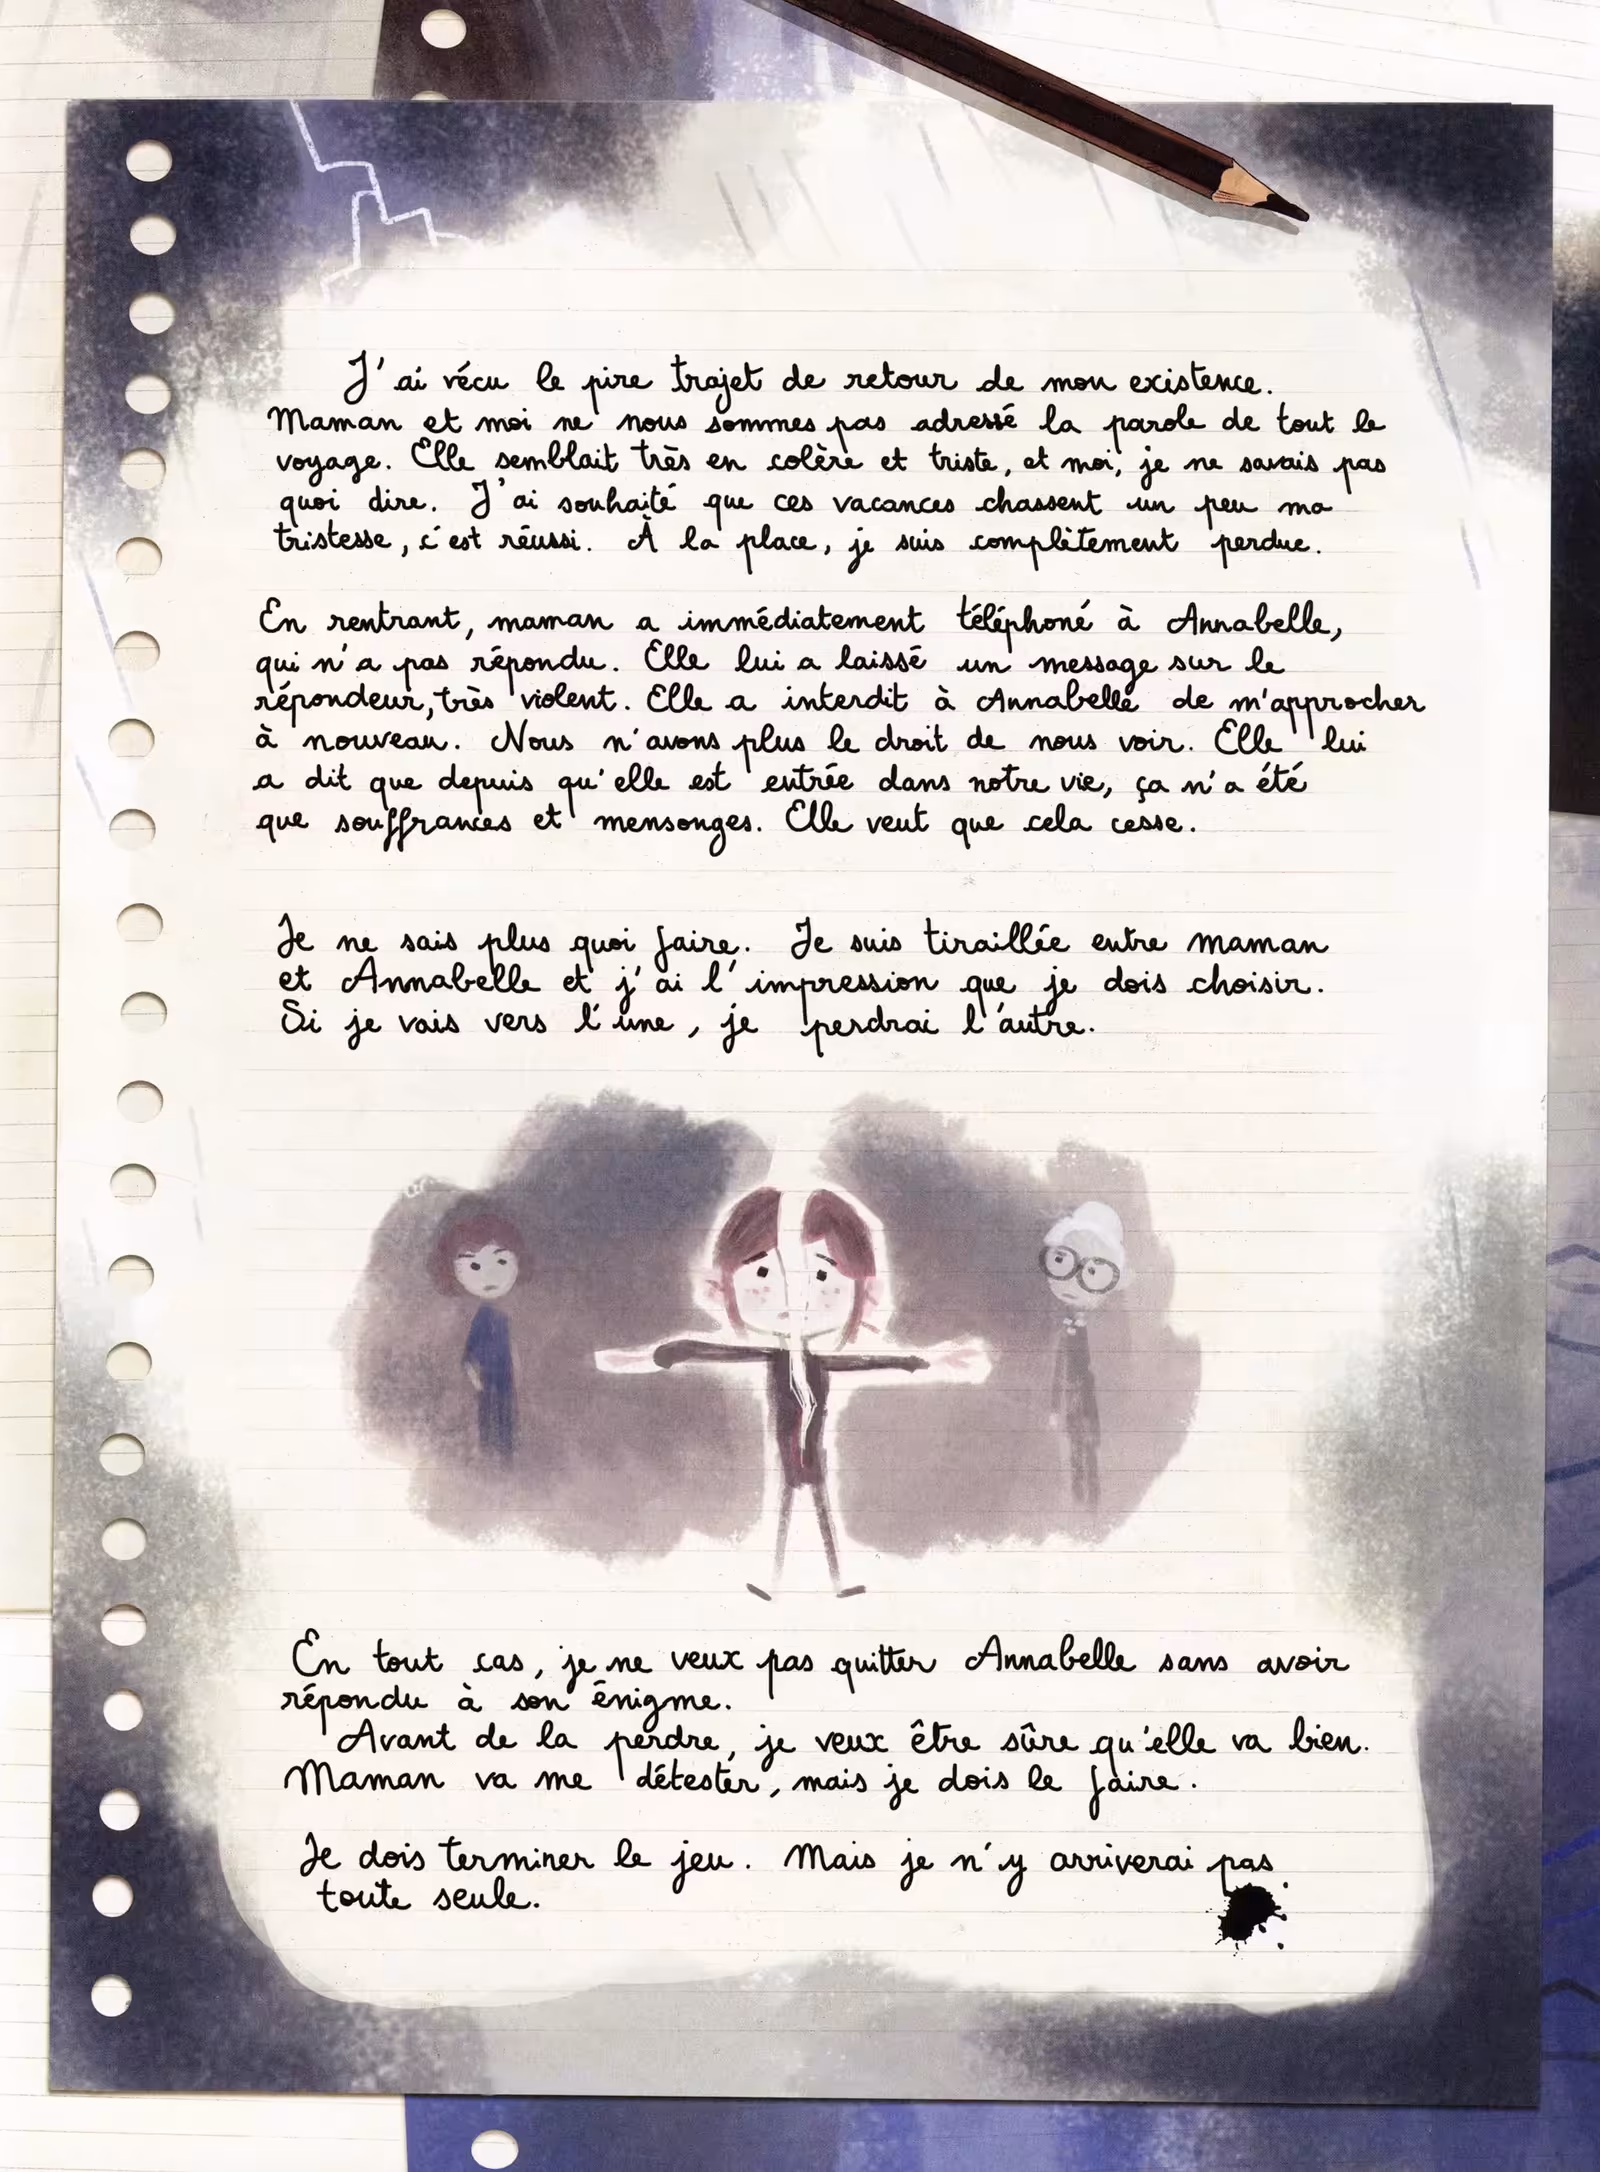 J'ai vécu le pire trajet de retour de mon existence.
Maman et moi ne nous sommes pas adressé la parole de tout le
voyage. Elle semblait très en colère et triste, et moi, je ne savais pas
quoi dire. J'ai souhaité que ces vacances chassent un peu ma
tristesse, c'est réussi. À la place, je suis complètement perdue.
En rentrant, maman a immédiatement téléphoné à Annabelle,
qui n'a pas répondu. Elle lui a laissé un message sur le
répondeur, très violent. Elle a interdit à Annabelle de m'approcher
à nouveau. Nous n'avons plus le droit de nous voir. Elle lui
a dit que depuis qu'elle est entrée dans notre vie, ça n'a été
que souffrances et mensonges. Elle veut que cela cesse.
Je ne sais plus quoi faire. Je suis tiraillée entre maman
et Annabelle et j'ai l'impression que je dois choisir.
Si je vais vers l'une, je perdrai l'autre.
En tout cas, je ne veux pas quitter Annabelle sans avoir
répondu à son énigme.
Avant de la perdre, je veux être sûre qu'elle va bien.
Maman va me détester, mais je dois le faire.
Je dois terminer le jeu. Mais je n'y arriverai pas
toute seule.